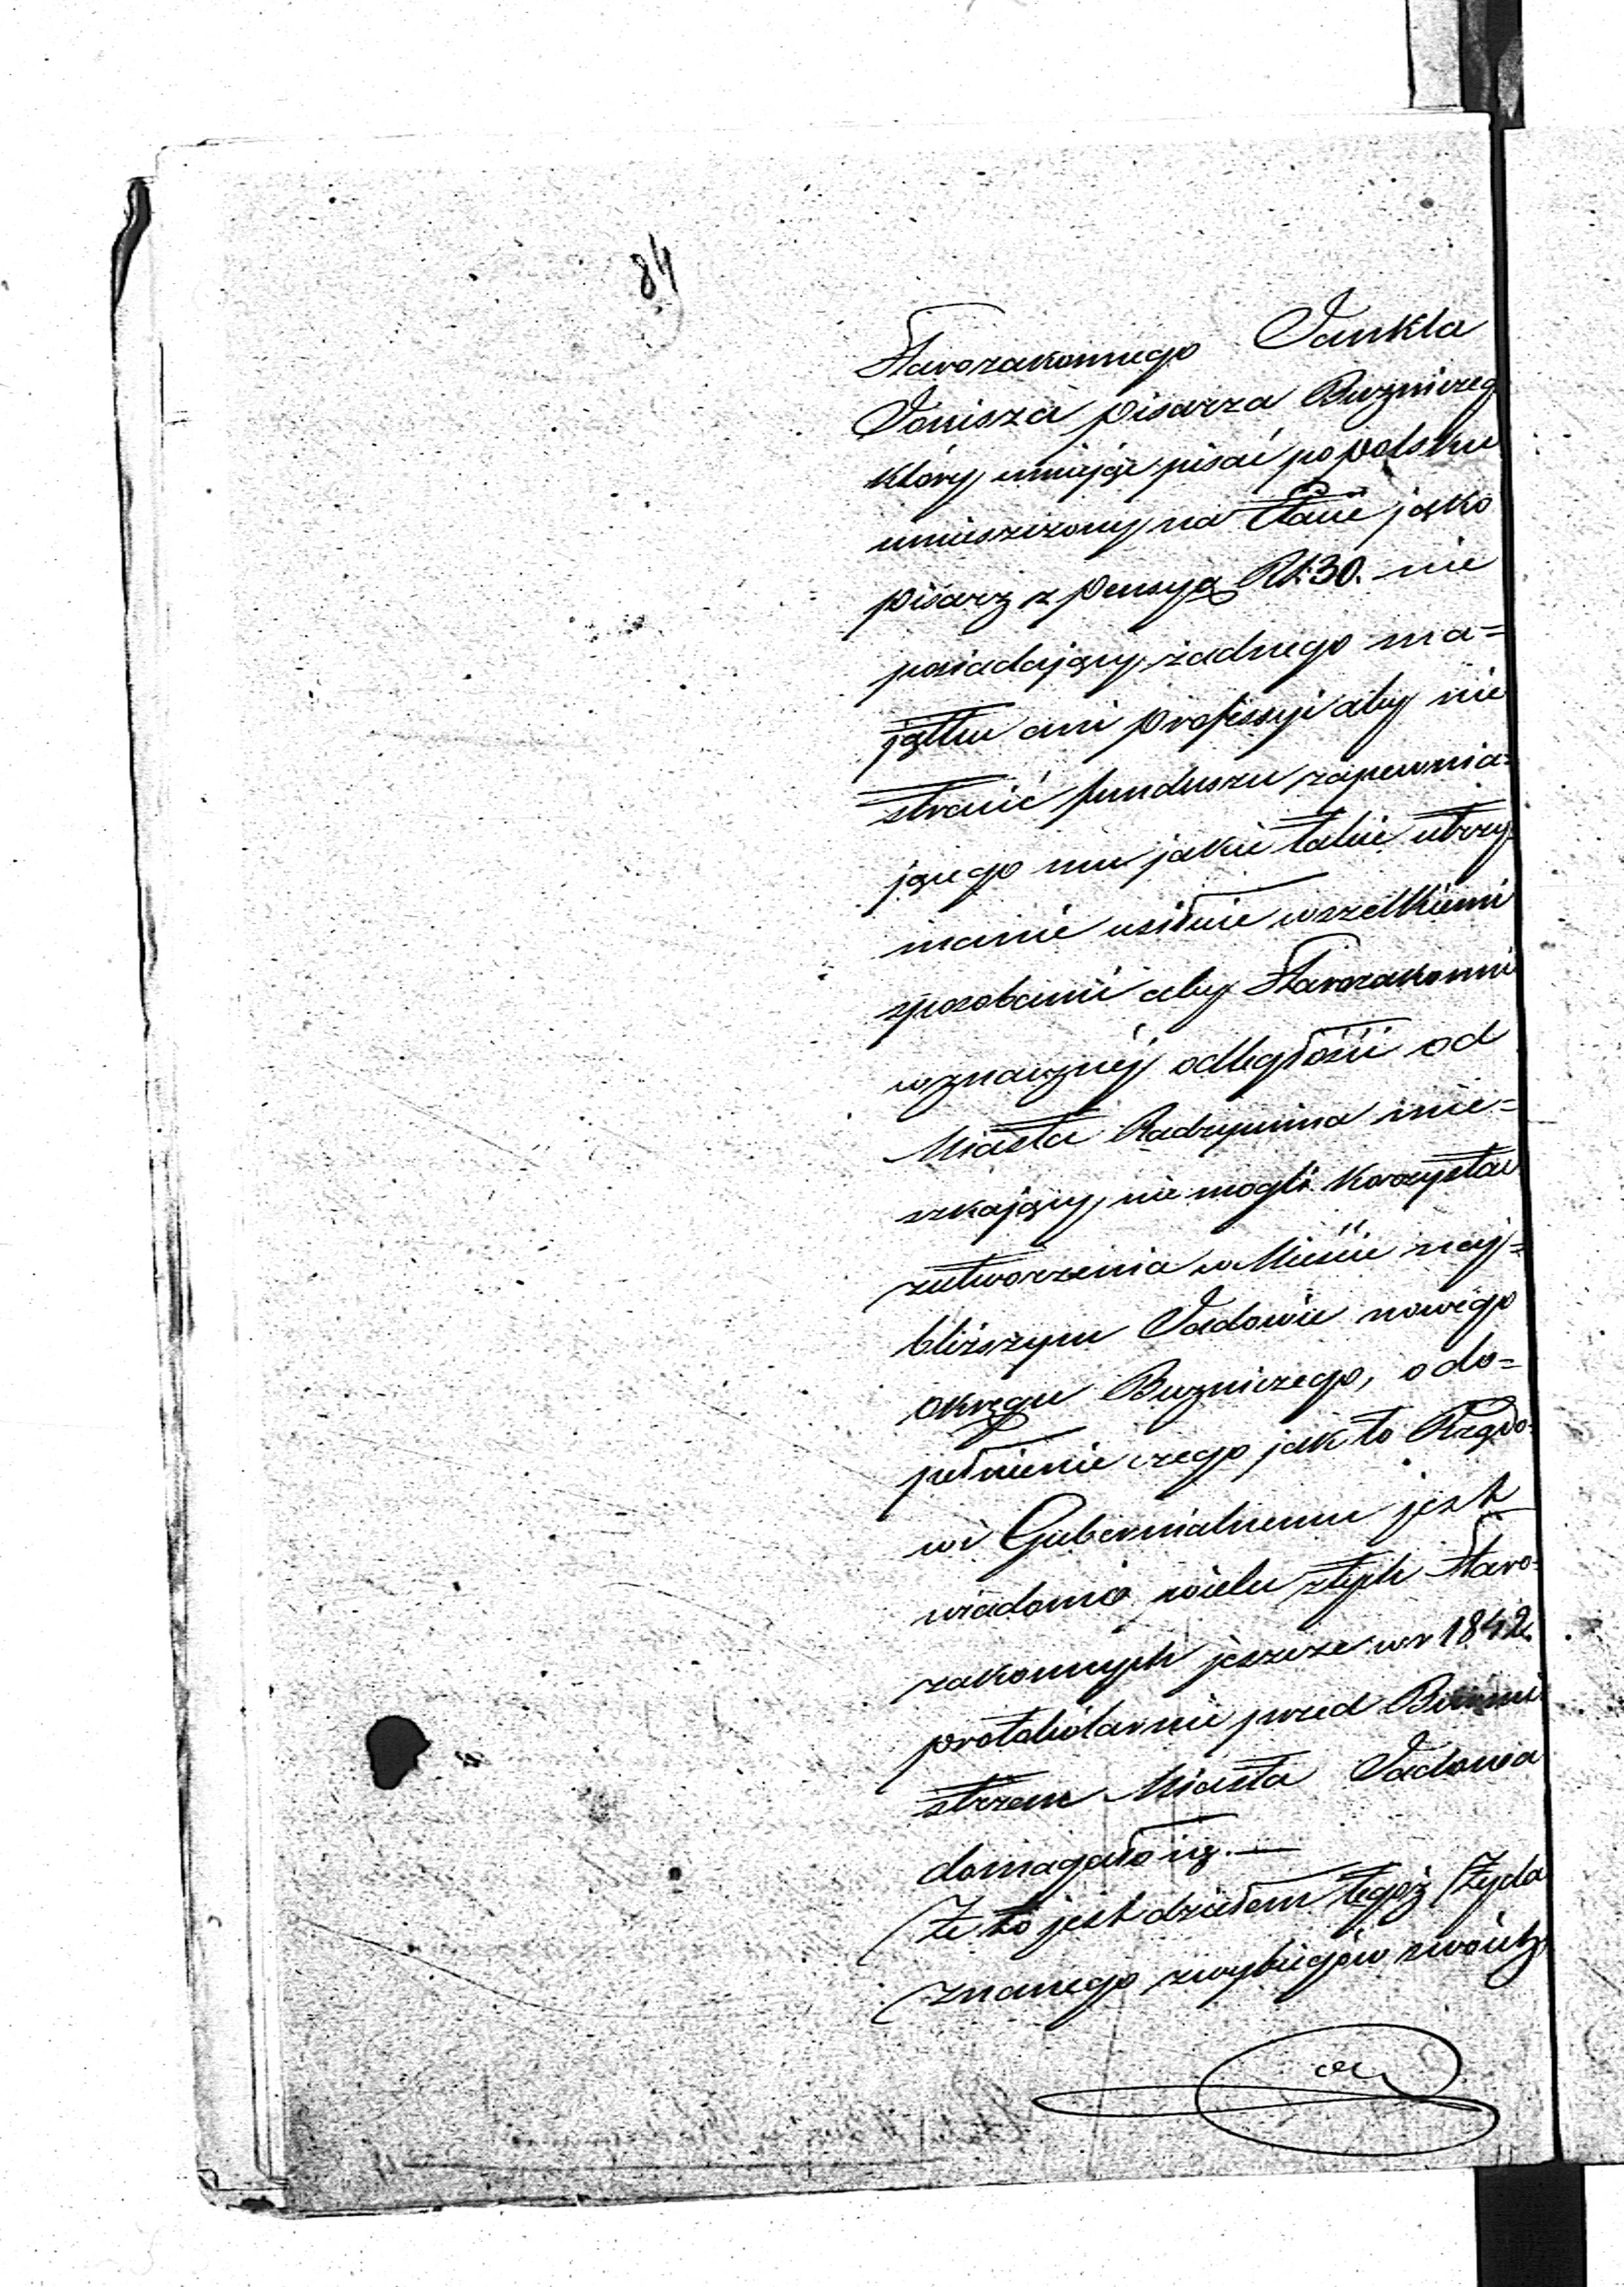 84
Starozakonnego Jankla
Jonisza pisarza Bużniczeg
który umiejąc pisać po polsku
umieszczony na Etacie jako
pisarz z pensyą Rs: 30. nie
posiadający żadnego ma=
jątku ani professyi aby nie
stracić funduszu zapewnia=
jącego mu jakie takie utrzy=
manie usiłuie wszelkiemi
sposobami aby Starozakonni
w znacznéj odległości od
Miasta Radzymina mie=
szkający, nie mogli korzystać
z utworzenia w Mieście naj=
bliższym Jadowie nowego
okręgu Bużniczego, o do=
pełnienie czego jak to Rządo=
wi Gubernialnemu jest
wiadomo wielu z tych Staro=
zakonnych jeszcze w r 1842.
protokólarnie przed Burmi
strzem Miasta Jadowa
domagało się. —
Że to jest dziełem tegoż Żyda
znanego z wybiegów